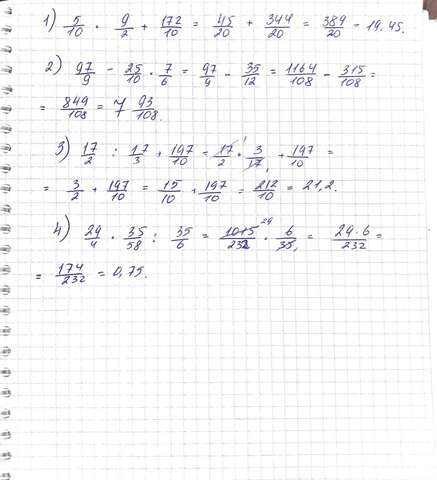 1) 5/10 · 9/2 + 172/10 = 45/20 + 344/20 = 389/20 - 19,45.
2) 97/9 - 25/10 · 7/6 = 97/9 - 35/12 = 1164/108 - 315/108 =
= 849/108 = 7 93/108.
3) 17/2 : 17/3 + 197/10 = 17/2 · 3/17 + 197/10 =
= 3/2 + 197/10 = 15/10 + 197/10 = 212/10 = 21,2.
4) 29/4 · 35/58 : 35/6 = 1015/232 · 6/35 = 29·6/232 =
= 174/232 = 0,75.